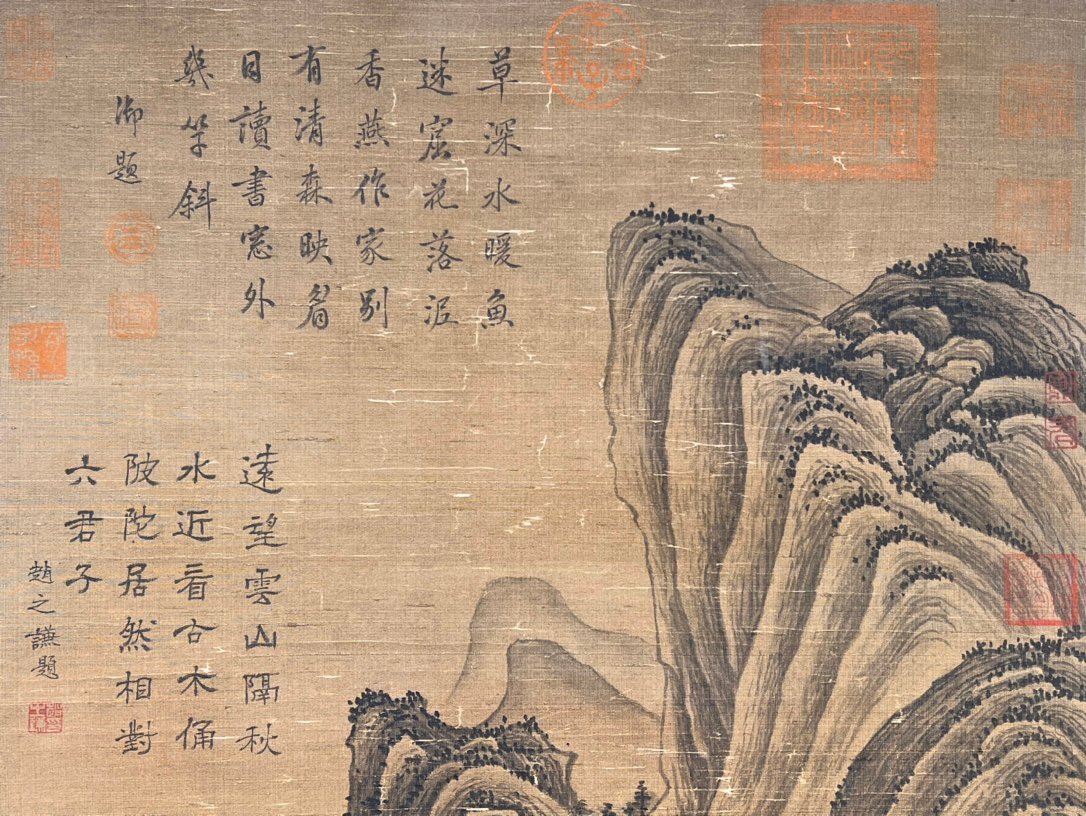 草深水暖魚
迷窟花落泥
香燕作家別
有清森映眉
目讀書窓外
幾竿斜
御題
遠望雲山隔秋
水近看古木俑
陂陀居然相對
六君子
趙之謙題